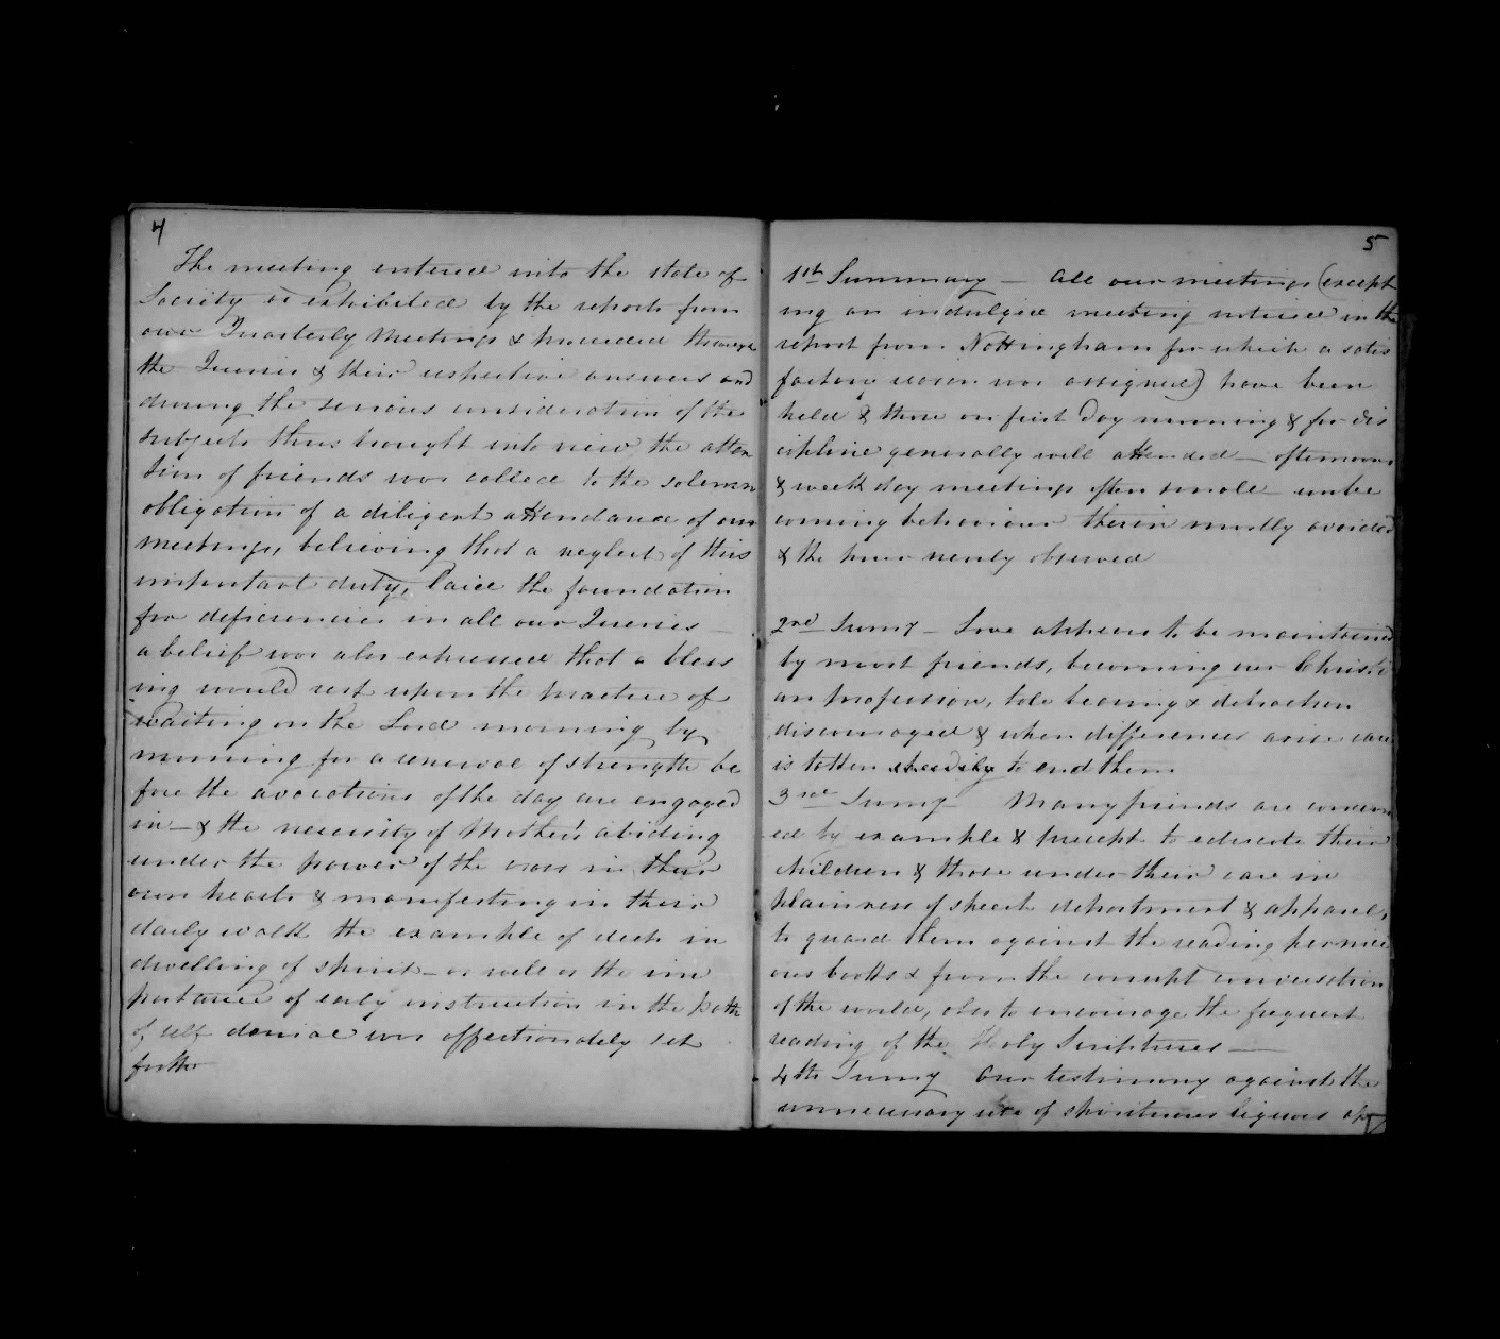 4
The meeting entered into the state of
Society as exhibited by the reports from
our Quarterly Meetings & proceeded through
the Queries & their respective answers and
during the serious consideration of the
subjects thus brought into view the atten
tion of friends was called to the solemn
obligation of a diligent attendance of our
meetings, believing that a neglect of this
important duty, laid the foundation
for deficiencies in all our Queries —
a belief was also expressed that a bless
ing would rest upon the practice of
waiting on the Lord morning by
morning for a renewal of strength be
fore the avocations of the day are engaged
in — & the necessity of Mothers abiding
under the power of the cross in their
own hearts & manifesting in their
daily walk the example of deep in
dwelling of spirit — as well as the im
portance of early instruction in the path
of self denial was affectionately set
forth
5
1st Summary — All our meetings (except
ing an indulged meeting noticed in the
report from Nottingham for which a satis
factory reason was assigned) have been
held & those on first day morning & for dis
cipline generally well attended — afternoon
& week day meetings often small — unbe
coming behaviour therein mostly avoided
& the hour nearly observed
2nd Sumy — Love appears to be maintained
by most friends, becoming our Christi
an profession, tale bearing & detraction
discouraged & when differences arise care
is taken speedily to end them
3rd Sumy Many friends are concern
ed by example & precept to educate their
children & those under their care in
plainness of speech deportment & apparel,
to guard them against the reading pernici
ous books & from the corrupt conversation
of the world, also to encourage the frequent
reading of the Holy Scriptures —
4th Sumy Our testimony against the
unnecessary use of spirituous liquors ap